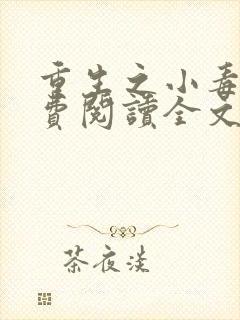 重生之小毒
費閱讀全文
茶夜淡